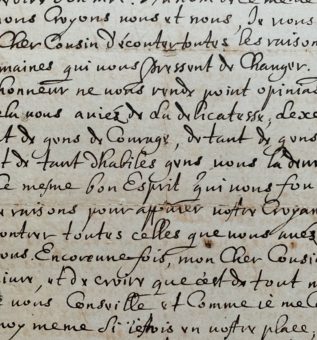 nous Croyons nous et nous, Je nous
Cher Cousin d'écouter toutes les raisons
maines qui vous pressent de Changer.
honneur ne nous rende point opinia
la nous aviés de la delicatesse, de
t de gens de Courage, de tant de gens
t de tant dhabiles gens nous la
le mesme bon Esprit qui nous fou
raisons pour apuier nostre Croyan
contrer toutes celles que nous auez
ous. Encore une fois, mon Cher Cousi
et de croire que c'est de tout m
nous Conseille et Comme ie me
moy meme Si i'estois en nostre place,